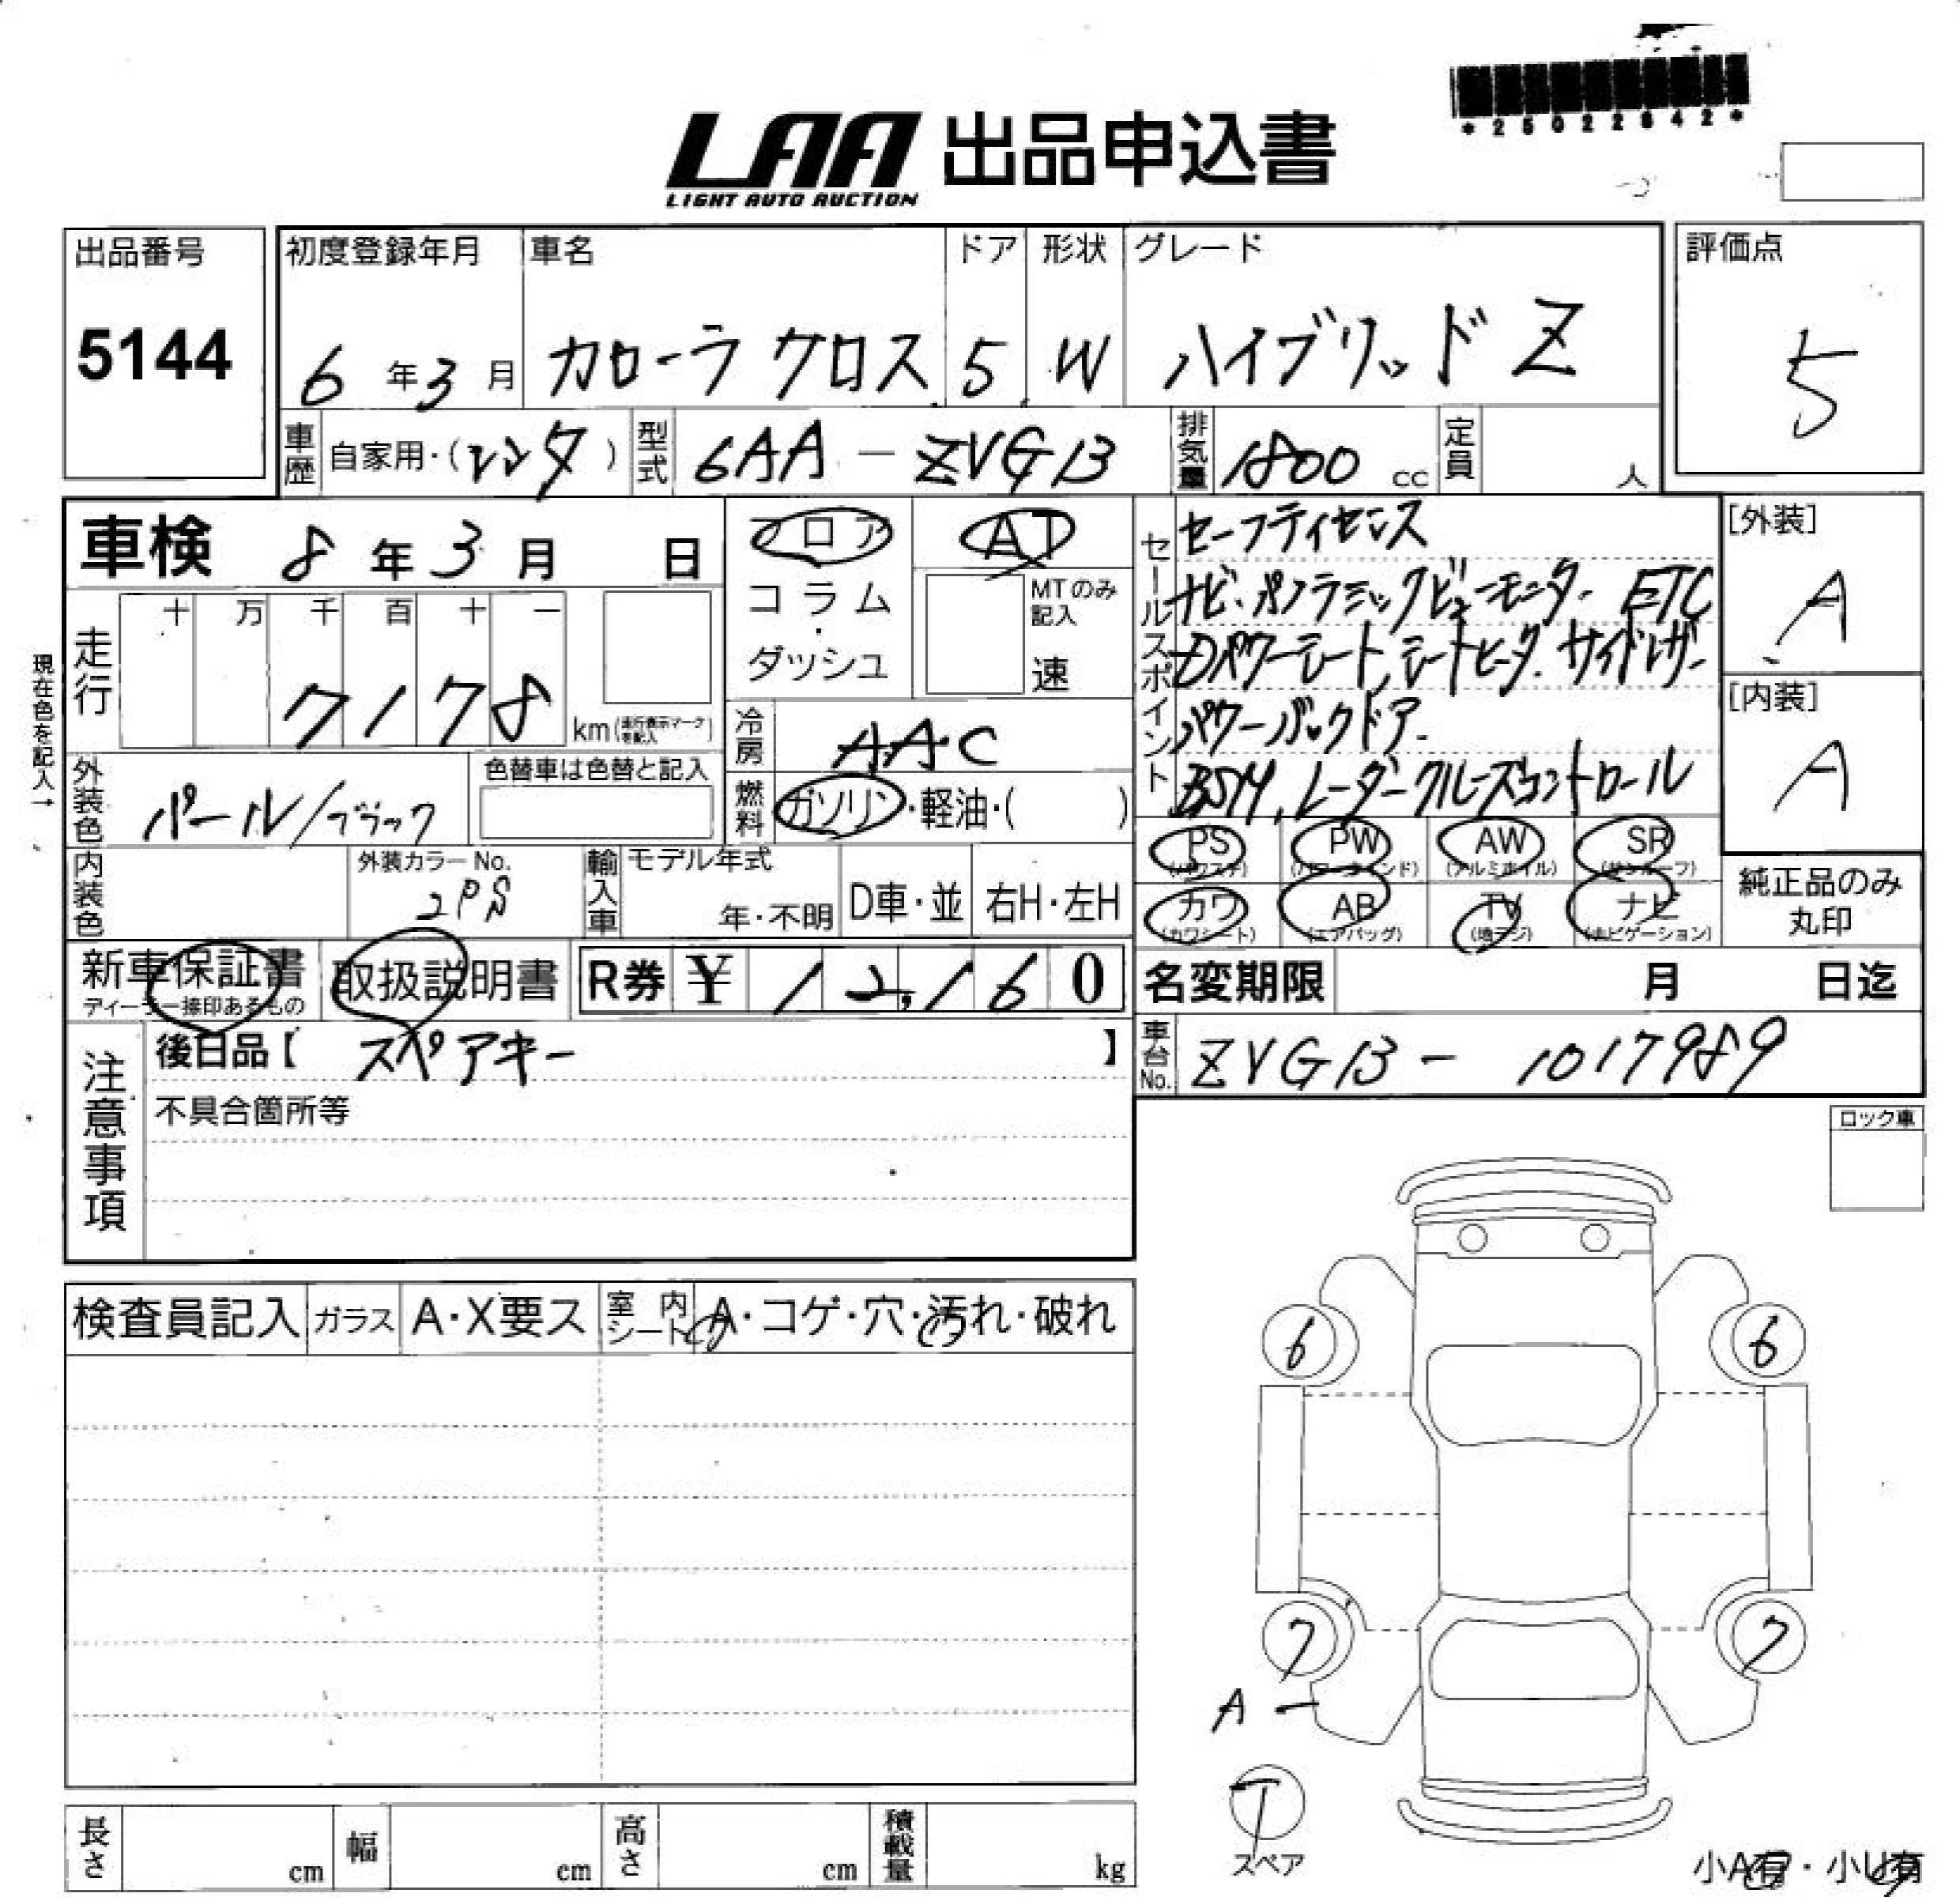 *25022642*
LAA 出品申込書
LIGHT AUTO AUCTION
出品番号
5144
初度登録年月
6年3月
車名
カローラ クロス
ドア
5
形状
W
グレード
ハイブリッド Z
評価点
5
車歴 自家用・(レンタ)
型式 6AA-ZVG13
排気量 1800 cc
定員 人
車検 8年3月 日
フロア
コラム・ダッシュ
AT
MTのみ記入
速
セールスポイント
セーフティセンス
ナビ・パノラミックビューモニター ETC
Dパワーシート、シートヒータ、サイドレザー
パワーバックドア
BSM、レーダークルーズコントロール
[外装]
A
[内装]
A
現在色を記入→
走行 十 万 千 百 十 一
7178 km (走行表示マークを記入)
冷房 AAC
燃料 ガソリン・軽油・( )
外装色 パール/ブラック
色替車は色替と記入
内装色
外装カラーNo.
2PS
輸入車 モデル年式
年・不明
D車・並
右H・左H
PS (パワステ)
PW (パワーウインド)
AW (アルミホイル)
SR (サンルーフ)
カワ (カワシート)
AB (エアバッグ)
TV (地デジ)
ナビ (ナビゲーション)
純正品のみ丸印
新車保証書
ディーラー捺印あるもの
取扱説明書
R券 ¥ 12,160
名変期限 月 日迄
車台No. ZVG13-1017989
注意事項
後日品【 スペアキー 】
不具合箇所等
ロック車
検査員記入 ガラス A・X要ス 室内シート A・コゲ・穴・汚れ・破れ
小
小
6
6
7
7
A
T
スペア
長さ cm 幅 cm 高さ cm 積載量 kg
小A有・小U有